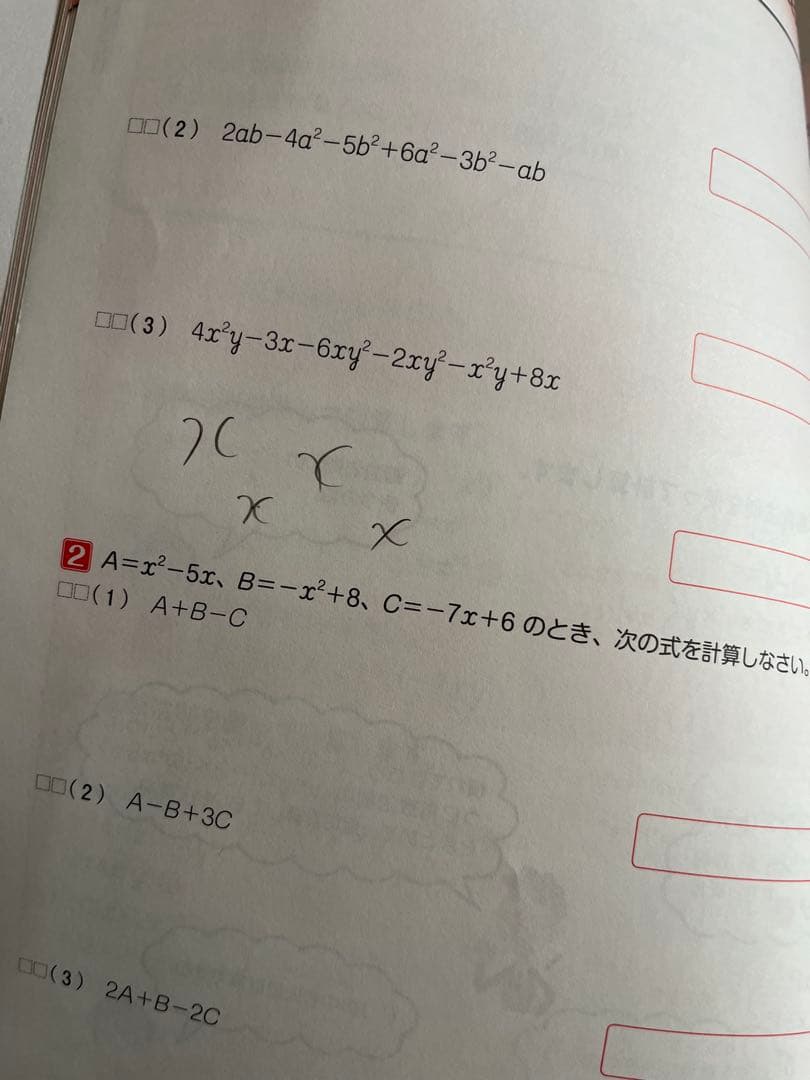 □□(2) 2ab−4a²−5b²+6a²−3b²−ab
□□(3) 4x²y−3x−6xy²−2xy²−x²y+8x
x x
x x
2 A=x²−5x、B=−x²+8、C=−7x+6 のとき、次の式を計算しなさい。
□□(1) A+B−C
□□(2) A−B+3C
□□(3) 2A+B−2C